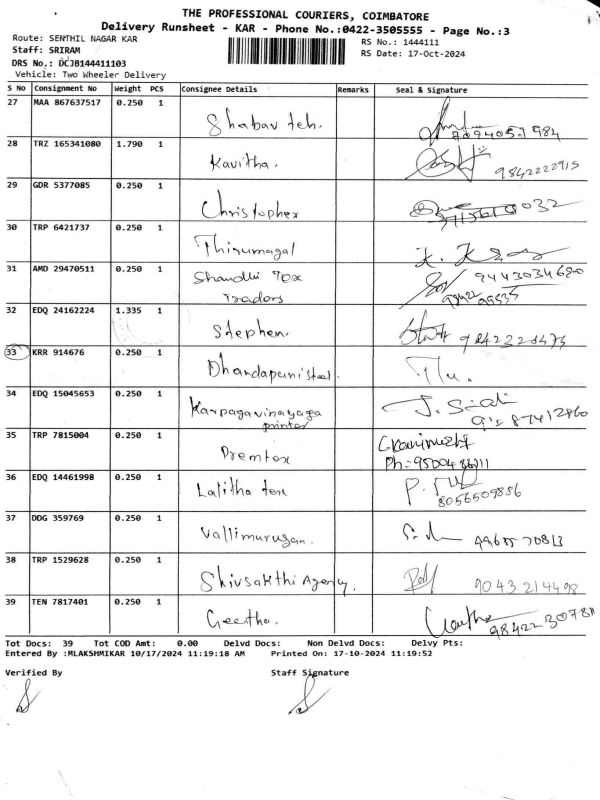 THE PROFESSIONAL COURIERS, COIMBATORE
Delivery Runsheet - KAR - Phone No.:0422-3505555 - Page No.:3
Route: SENTHIL NAGAR KAR
RS No.: 1444111
Staff: SRIRAM
RS Date: 17-Oct-2024
DRS No.: DCJB144411103
Vehicle: Two Wheeler Delivery
S No Consignment No Weight PCS Consignee Details Remarks Seal & Signature
27 MAA 867637517 0.250 1 Shabav teh.
28 TRZ 165341080 1.790 1 Kavitha. 9842222915
29 GDR 5377085 0.250 1 Christopher
30 TRP 6421737 0.250 1 Thirumagal
31 AMD 29470511 0.250 1 Shandhi Tex Traders
32 EDQ 24162224 1.335 1 Stephen.
33 KRR 914676 0.250 1 Dhandapani steel.
34 EDQ 15045653 0.250 1 Karpagavinayaga printer
35 TRP 7815004 0.250 1 Premtex
36 EDQ 14461998 0.250 1 Lalitha tex 8056509886
37 DDG 359769 0.250 1 Vallimurugan.
38 TRP 1529628 0.250 1 Shivsakthi Agency. 9043214498
39 TEN 7817401 0.250 1 Geetha.
Tot Docs: 39 Tot COD Amt: 0.00 Delvd Docs: Non Delvd Docs: Delvy Pts:
Entered By :MLAKSHMIKAR 10/17/2024 11:19:18 AM Printed On: 17-10-2024 11:19:52
Verified By Staff Signature